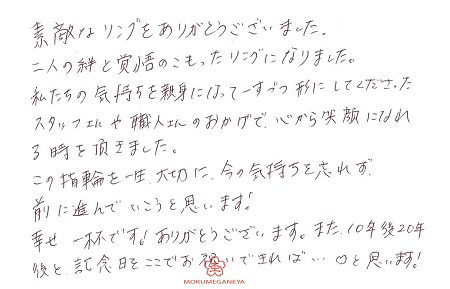 素敵なリングをありがとうございました。
二人の絆と覚悟のこもったリングになりました。
私たちの気持ちを親身になって一すづつ形にしてくださった
スタッフさんや職人さんのおかげで、心から笑顔になれ
る時を頂きました。
この指輪を一生、大切に、今の気持ちを忘れず、
前に進んでいこうと思います!
幸せ一杯です!ありがとうございます。また、10年後20年
後と、記念日をここでお祝いできればいい♡と思います!
MOKUMEGANEYA